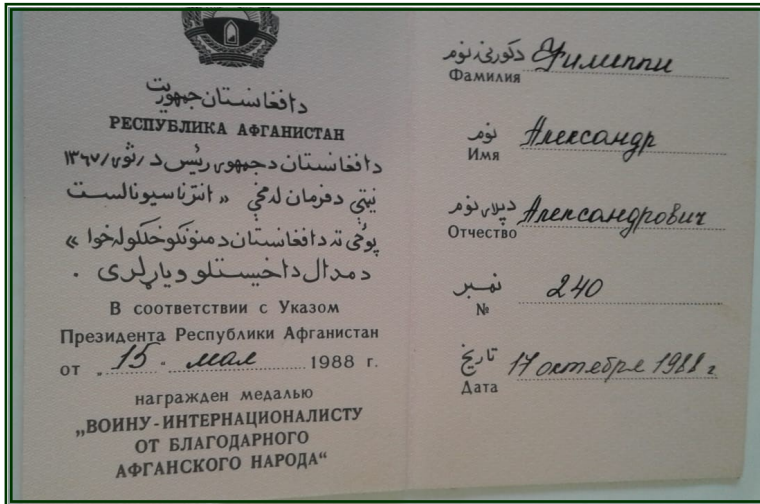 دافغانستان جمهوریت
РЕСПУБЛИКА АФГАНИСТАН
دافغانستان دجمهوری رئیس د /ثور/ ۱۳۶۷
نیټې دفرمان له مخې « انترناسیونالست
پوځی ته دافغانستان دمنونکو خلکو له خوا »
دمدال داخیستلو ویاړ لری .
В соответствии с Указом
Президента Республики Афганистан
от „15" мая 1988 г.
награжден медалью
„ВОИНУ-ИНТЕРНАЦИОНАЛИСТУ
ОТ БЛАГОДАРНОГО
АФГАНСКОГО НАРОДА“
دکورنۍ نوم Филиппи
Фамилия
نوم Александр
Имя
دپلار نوم Александрович
Отчество
نمبر 240
№
تاریخ 17 октября 1988 г
Дата